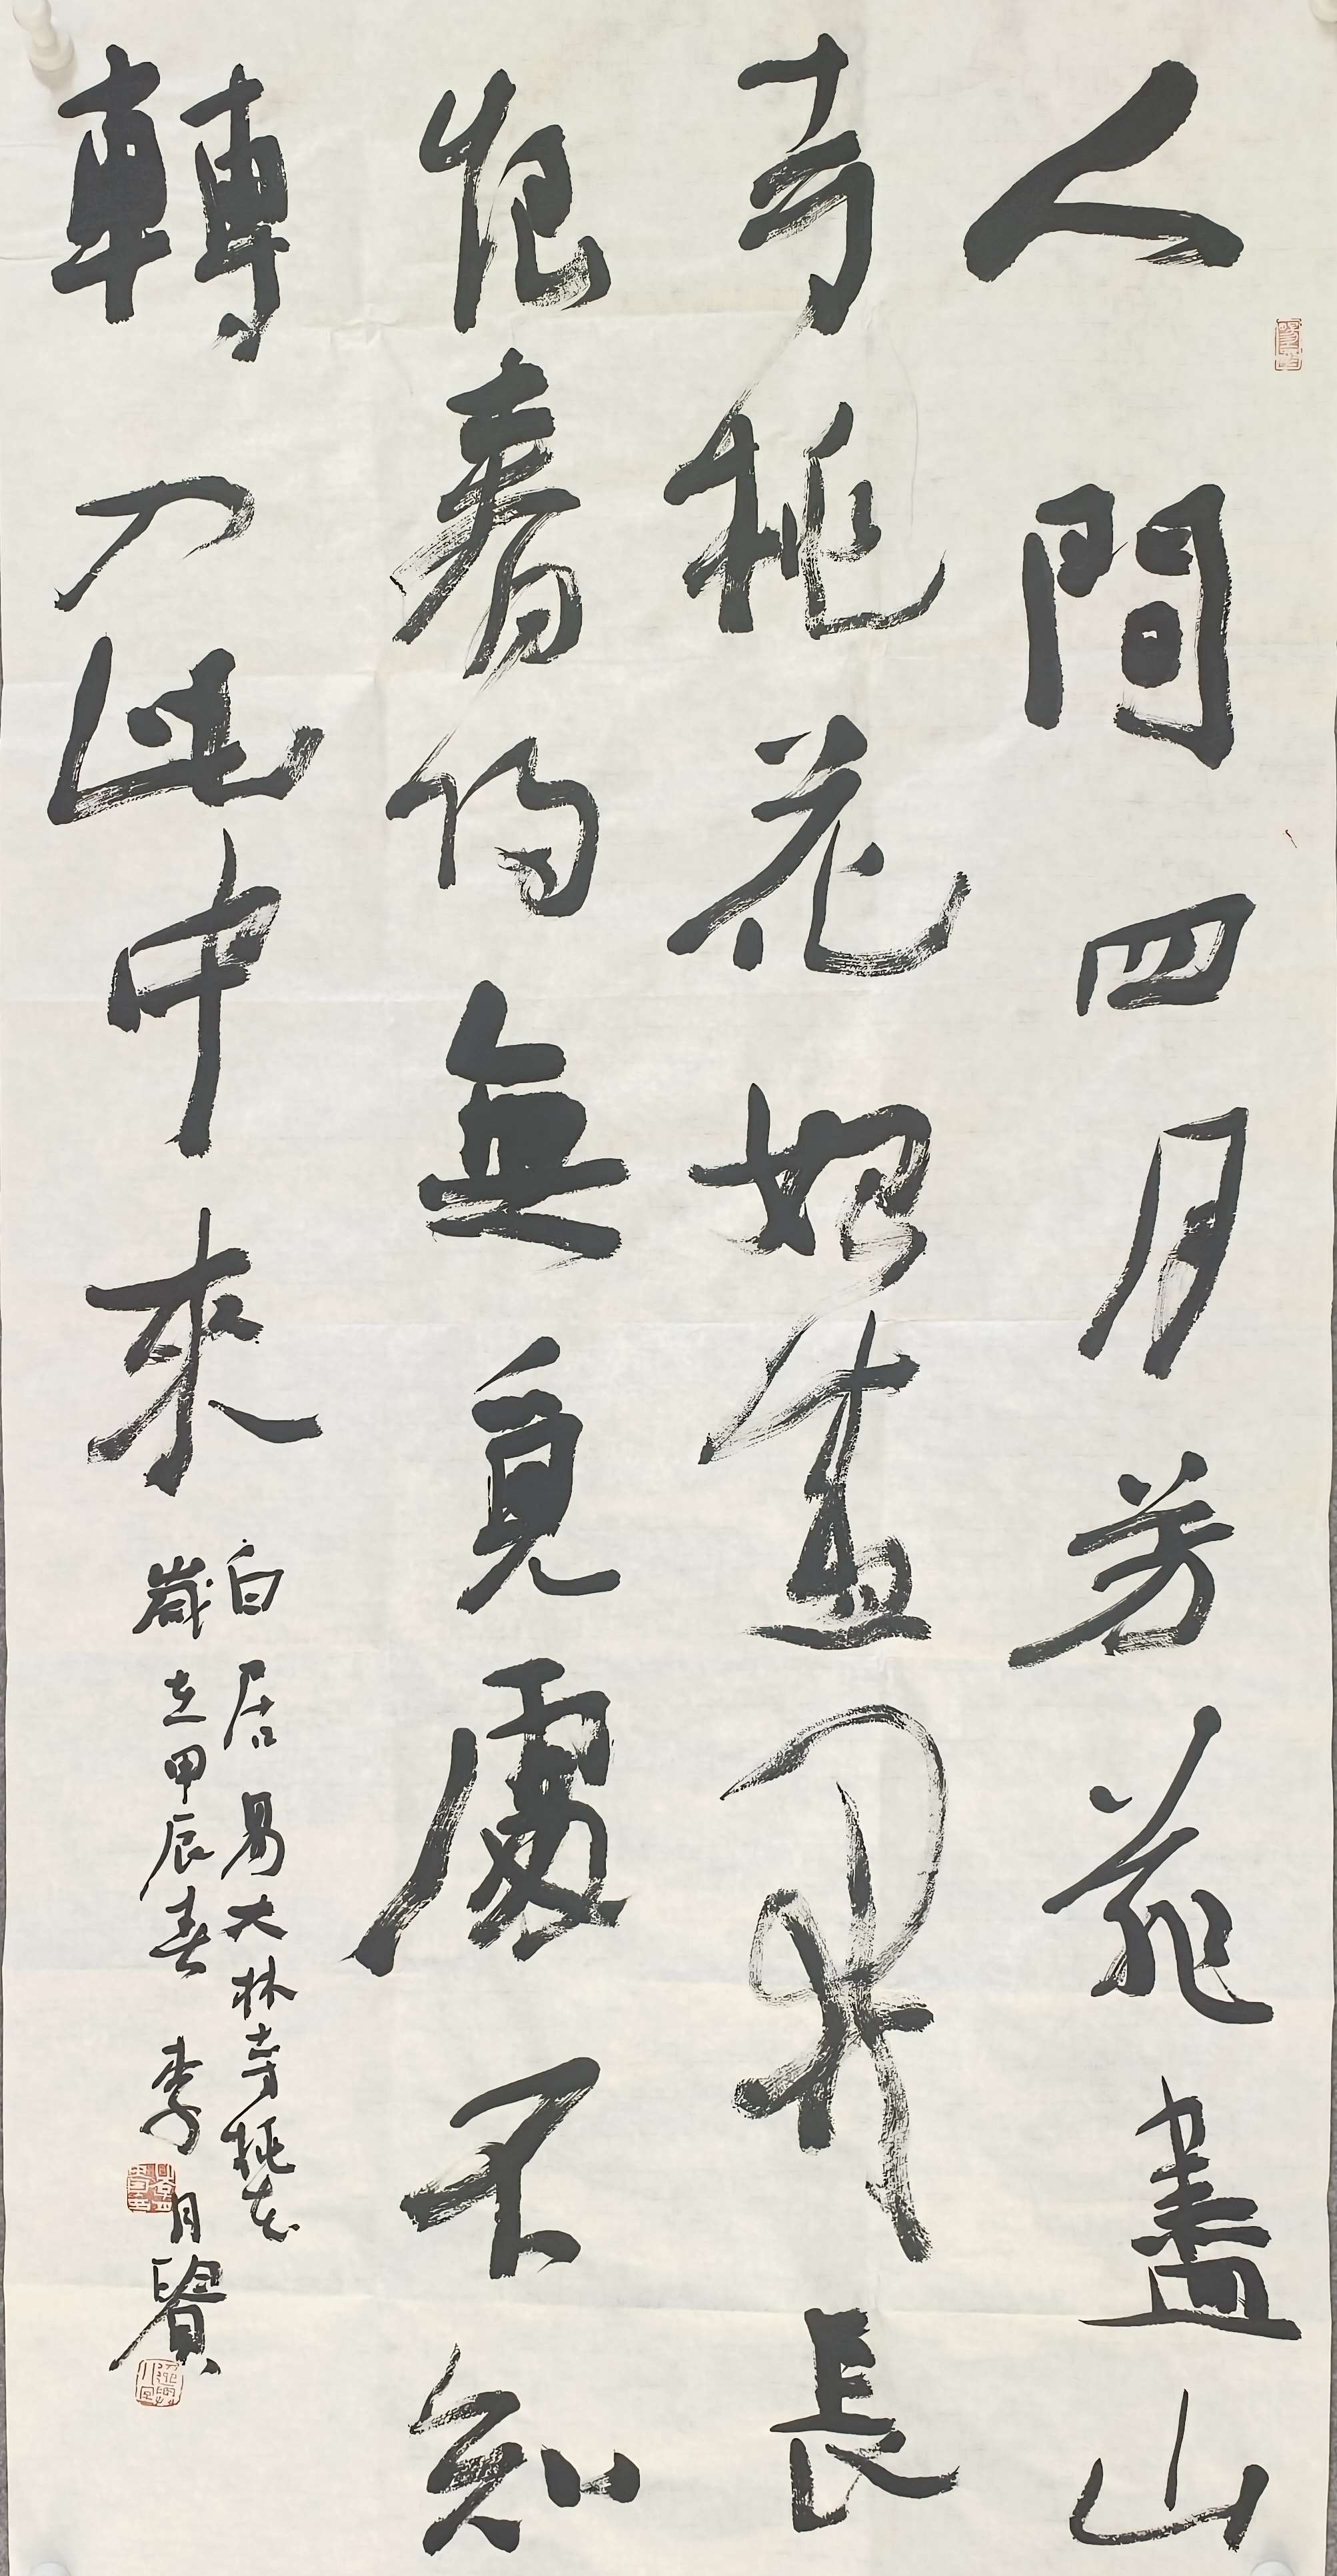 人間四月芳菲盡山
寺桃花始盛開長
恨春歸無覓處不知
轉入此中來
白居易大林寺桃花
歲在甲辰春 李月賢